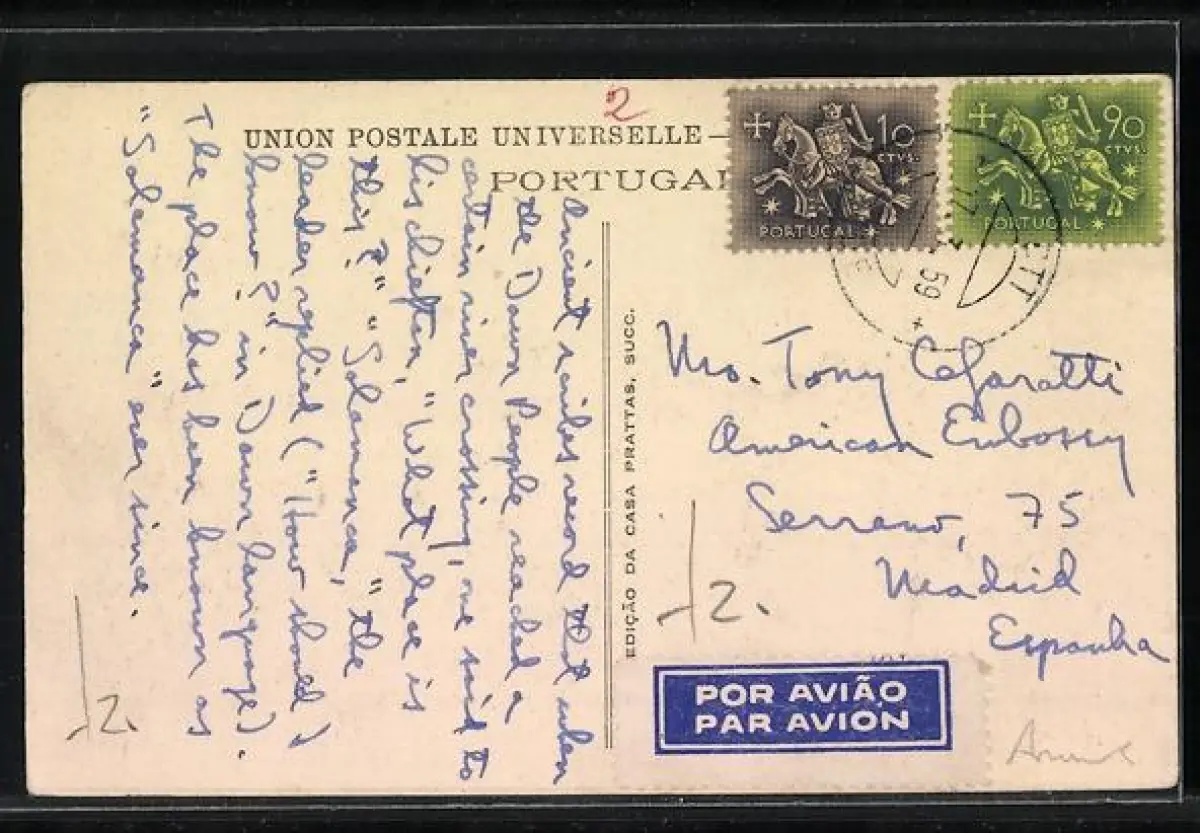 2
UNION POSTALE UNIVERSELLE
PORTUGAL
Ancient scribes record that when
the Dawn People reached a
certain river crossing, one said to
his chieftain, "What place is
this?" "Salamanca," the
leader replied ("How should I
know?" in Dawn language).
The place has been known as
"Salamanca" ever since.
EDIÇÃO DA CASA PRATTAS, SUCC.
10
CTVS.
PORTUGAL
90
CTVS.
PORTUGAL
59
Mr. Tony
American Embassy
Serrano, 75
Madrid
Espanha
12.
12.
POR AVIÃO
PAR AVION